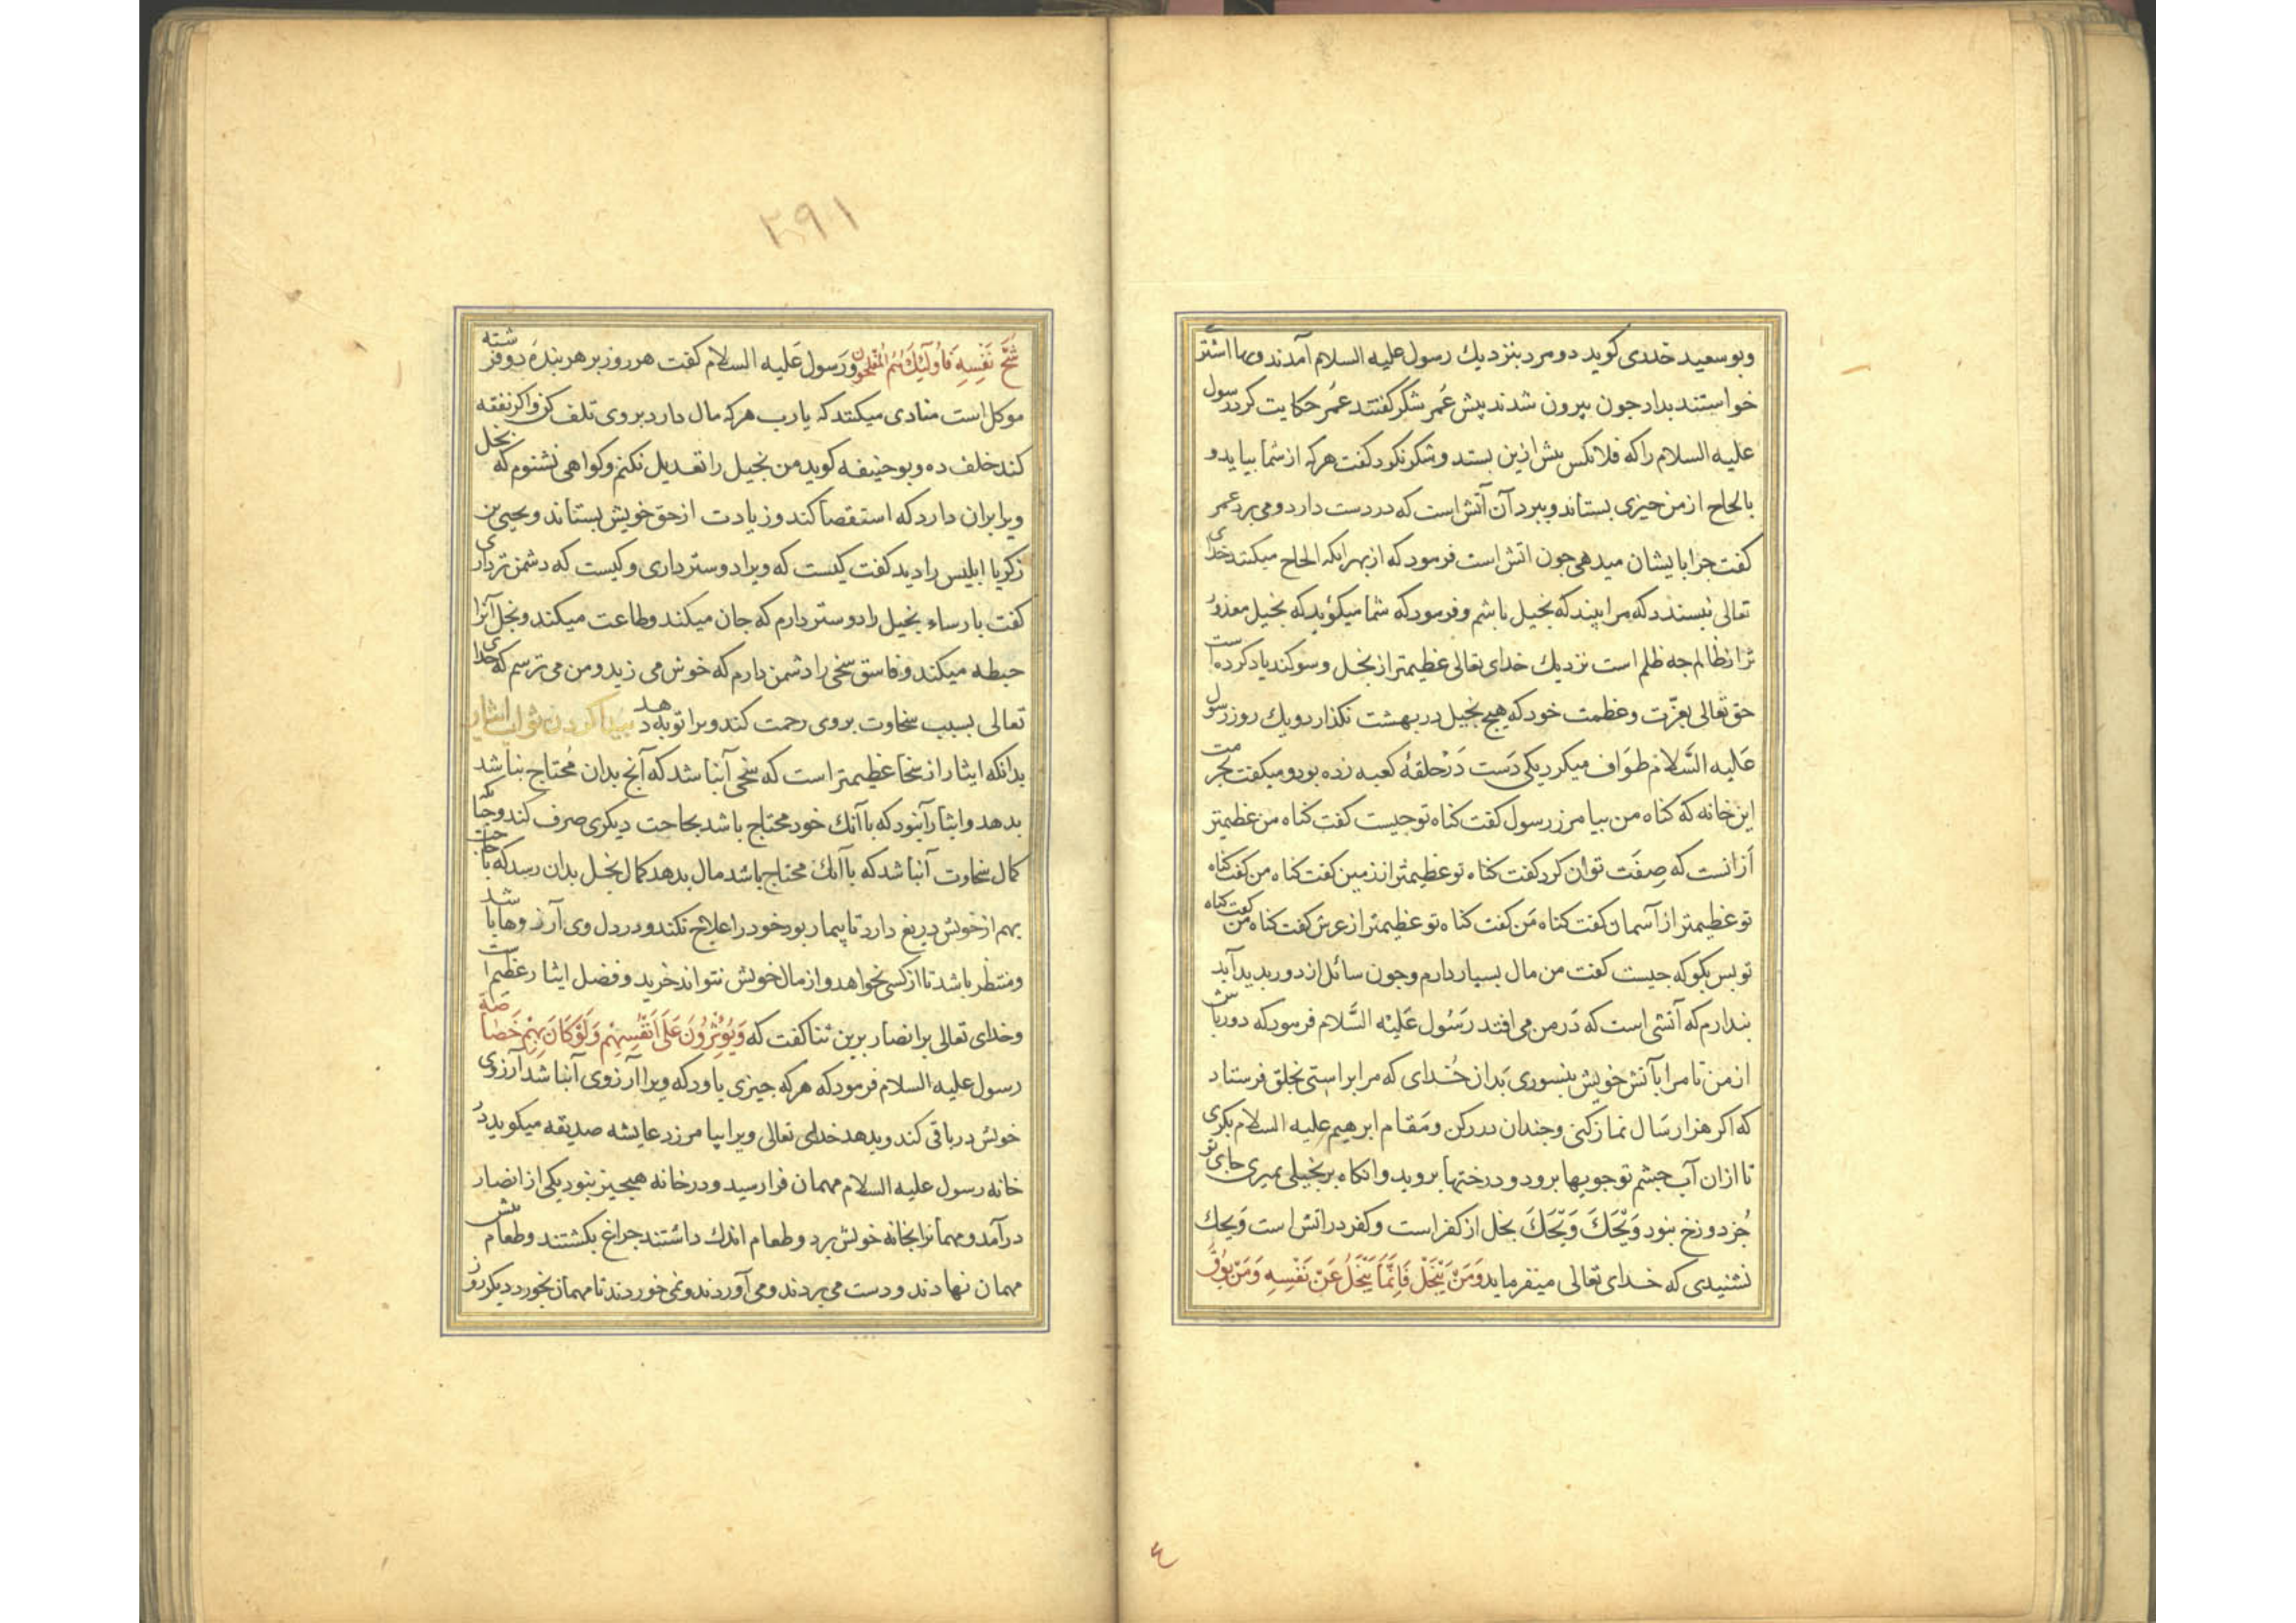 وبو سعید خدری کوید دو مرد بنزدیك رسول علیه السلام آمدند وبها اشتر
خواستند بداد جون بیرون شدند پیش عُمر شکر کفتند عُمر حکایت کرد رسول
علیه السلام را که فلانکس بیش ازین بستد وشکر نکرد کفت هرکه از شما بیاید و
بالحاح از من جیزی بستاند وببرد آن آتش است که در دست دارد ومی برد عمر
کفت جرا بایشان میدهی جون اتش است فرمود که از بهر انکه الحاح میکنند خدای
تعالی نبسندد که مرا بیند که بخیل باشم وفرمود که شما میکوئید که بخیل معذور
تر از ظالم جه ظلم است نزدیك خدای تعالی عظیمتر از بخل وسوکند یاد کرده است
حق تعالی بعزّت وعظمت خود که هیج بخیل در بهشت نکذارد ویك روز رسول
عَلیه السَّلام طوَاف میکرد یکی دَست دَر حلقهٔ کعبه زده بود ومیکفت بحرمت
این خانه که کناه من بیامرز رسول کفت کناه تو جیست کفت کناه من عظیمتر
اَز انست که صِفَت توان کرد کفت کناه تو عظیمتر از زمین کفت کناه من کفت کناه
تو عظیمتر از آسمان کفت کناه مَن کفت کناه تو عظیمتر از عرش کفت کناه من کفت کناه
تو بس بکو که جیست کفت من مال بسیار دارم وجون سائل از دور بدید آید
بندارم که آتشی است که دَر من می افتد رَسُول عَلَیْه السَّلام فرمود که دور باش
از من تا مرا بآتش خویش بنسوزی بَدان خُدای که مرا براستی بخلق فرستاد
که اکر هزار سَال نماز کنی وجندان در رکن ومَقام ابرهیم علیه السلام بکری
تا ازان آب جشم تو جویها برود ودرختها بروید وانکاه بر بخیلی بمیری جای تو
جُز دوزخ بنود وَیْحَكَ وَیْحَكَ بخل از کفر است وکفر در اتش است وَیحك
نشنیدی که خدای تعالی میفرماید وَمَنْ یَبْخَلْ فَاِنَّمَا یَبْخَلُ عَنْ نَفْسِهِ وَمَنْ یُوقَ
۲۹۱
شُحَّ نَفْسِهِ فَاُولٰئِكَ هُمُ المُفْلِحُونَ ورَسول عَلیه السلام کفت هر روز بر هر بندهٔ دو فرشته
موکل است منادی میکنند که یا رب هرکه مال دارد بر وی تلف کن واکر نفقه
کند خلف ده وبو حنیفه کوید من بخیل را تعدیل نکنم وکواهی نشنوم که بخل
ویرا بران دارد که استقصا کند وزیادت از حق خویش بستاند ویحیی بن
زکریا ابلیس را دید کفت کیست که ویرا دوستر داری وکیست که دشمن تر داری
کفت بارساء بخیل را دوستر دارم که جان میکند وطاعت میکند وبخل آنرا
حبطه میکند وفاسق سخی را دشمن دارم که خوش می زید ومن می ترسم که خدای
تعالی بسبب سخاوت بروی رحمت کند ویرا توبه دهد بیدا کردن ثواب ایثار
بدانکه ایثار از سخا عظیمتر است که سخی آنباشد که آنج بدان مُحتاج نباشد
بدهد وایثار آنبود که باآنك خود محتاج باشد بحاجت دیکری صرف کند وجنانکه
کمال سخاوت آنباشد که باآنك محتاج باشد مال بدهد کمال بخل بدان رسد که باحاجت
بهم از خویش دریغ دارد تا بیمار بود خود را علاج نکند ودر دل وی آرزوها باشد
ومنتظر باشد تا از کسی بخواهد واز مال خویش نتواند خرید وفضل ایثار عظیم است
وخدای تعالی بر انصار برین ثنا کفت که وَیُؤْثِرُونَ عَلَی اَنْفُسِهِمْ وَلَوْ کَانَ بِهِمْ خَصَاصَةٌ
رسول علیه السلام فرمود که هرکه جیزی یاود که ویرا آرزوی آنباشد آرزوی
خویش در باقی کند وبدهد خدای تعالی ویرا بیامرزد عایشه صدیقه میکوید در
خانه رسول علیه السلام مهمان فرا رسید ودر خانه هیجیز بنود یکی از انصار
درآمد ومهمانرا بخانه خویش برد وطعام اندك داشتند جراغ بکشتند وطعام بیش
مهمان نهادند ودست می بردند ومی آوردند ونمی خوردند تا مهمان بخورد دیکر روز